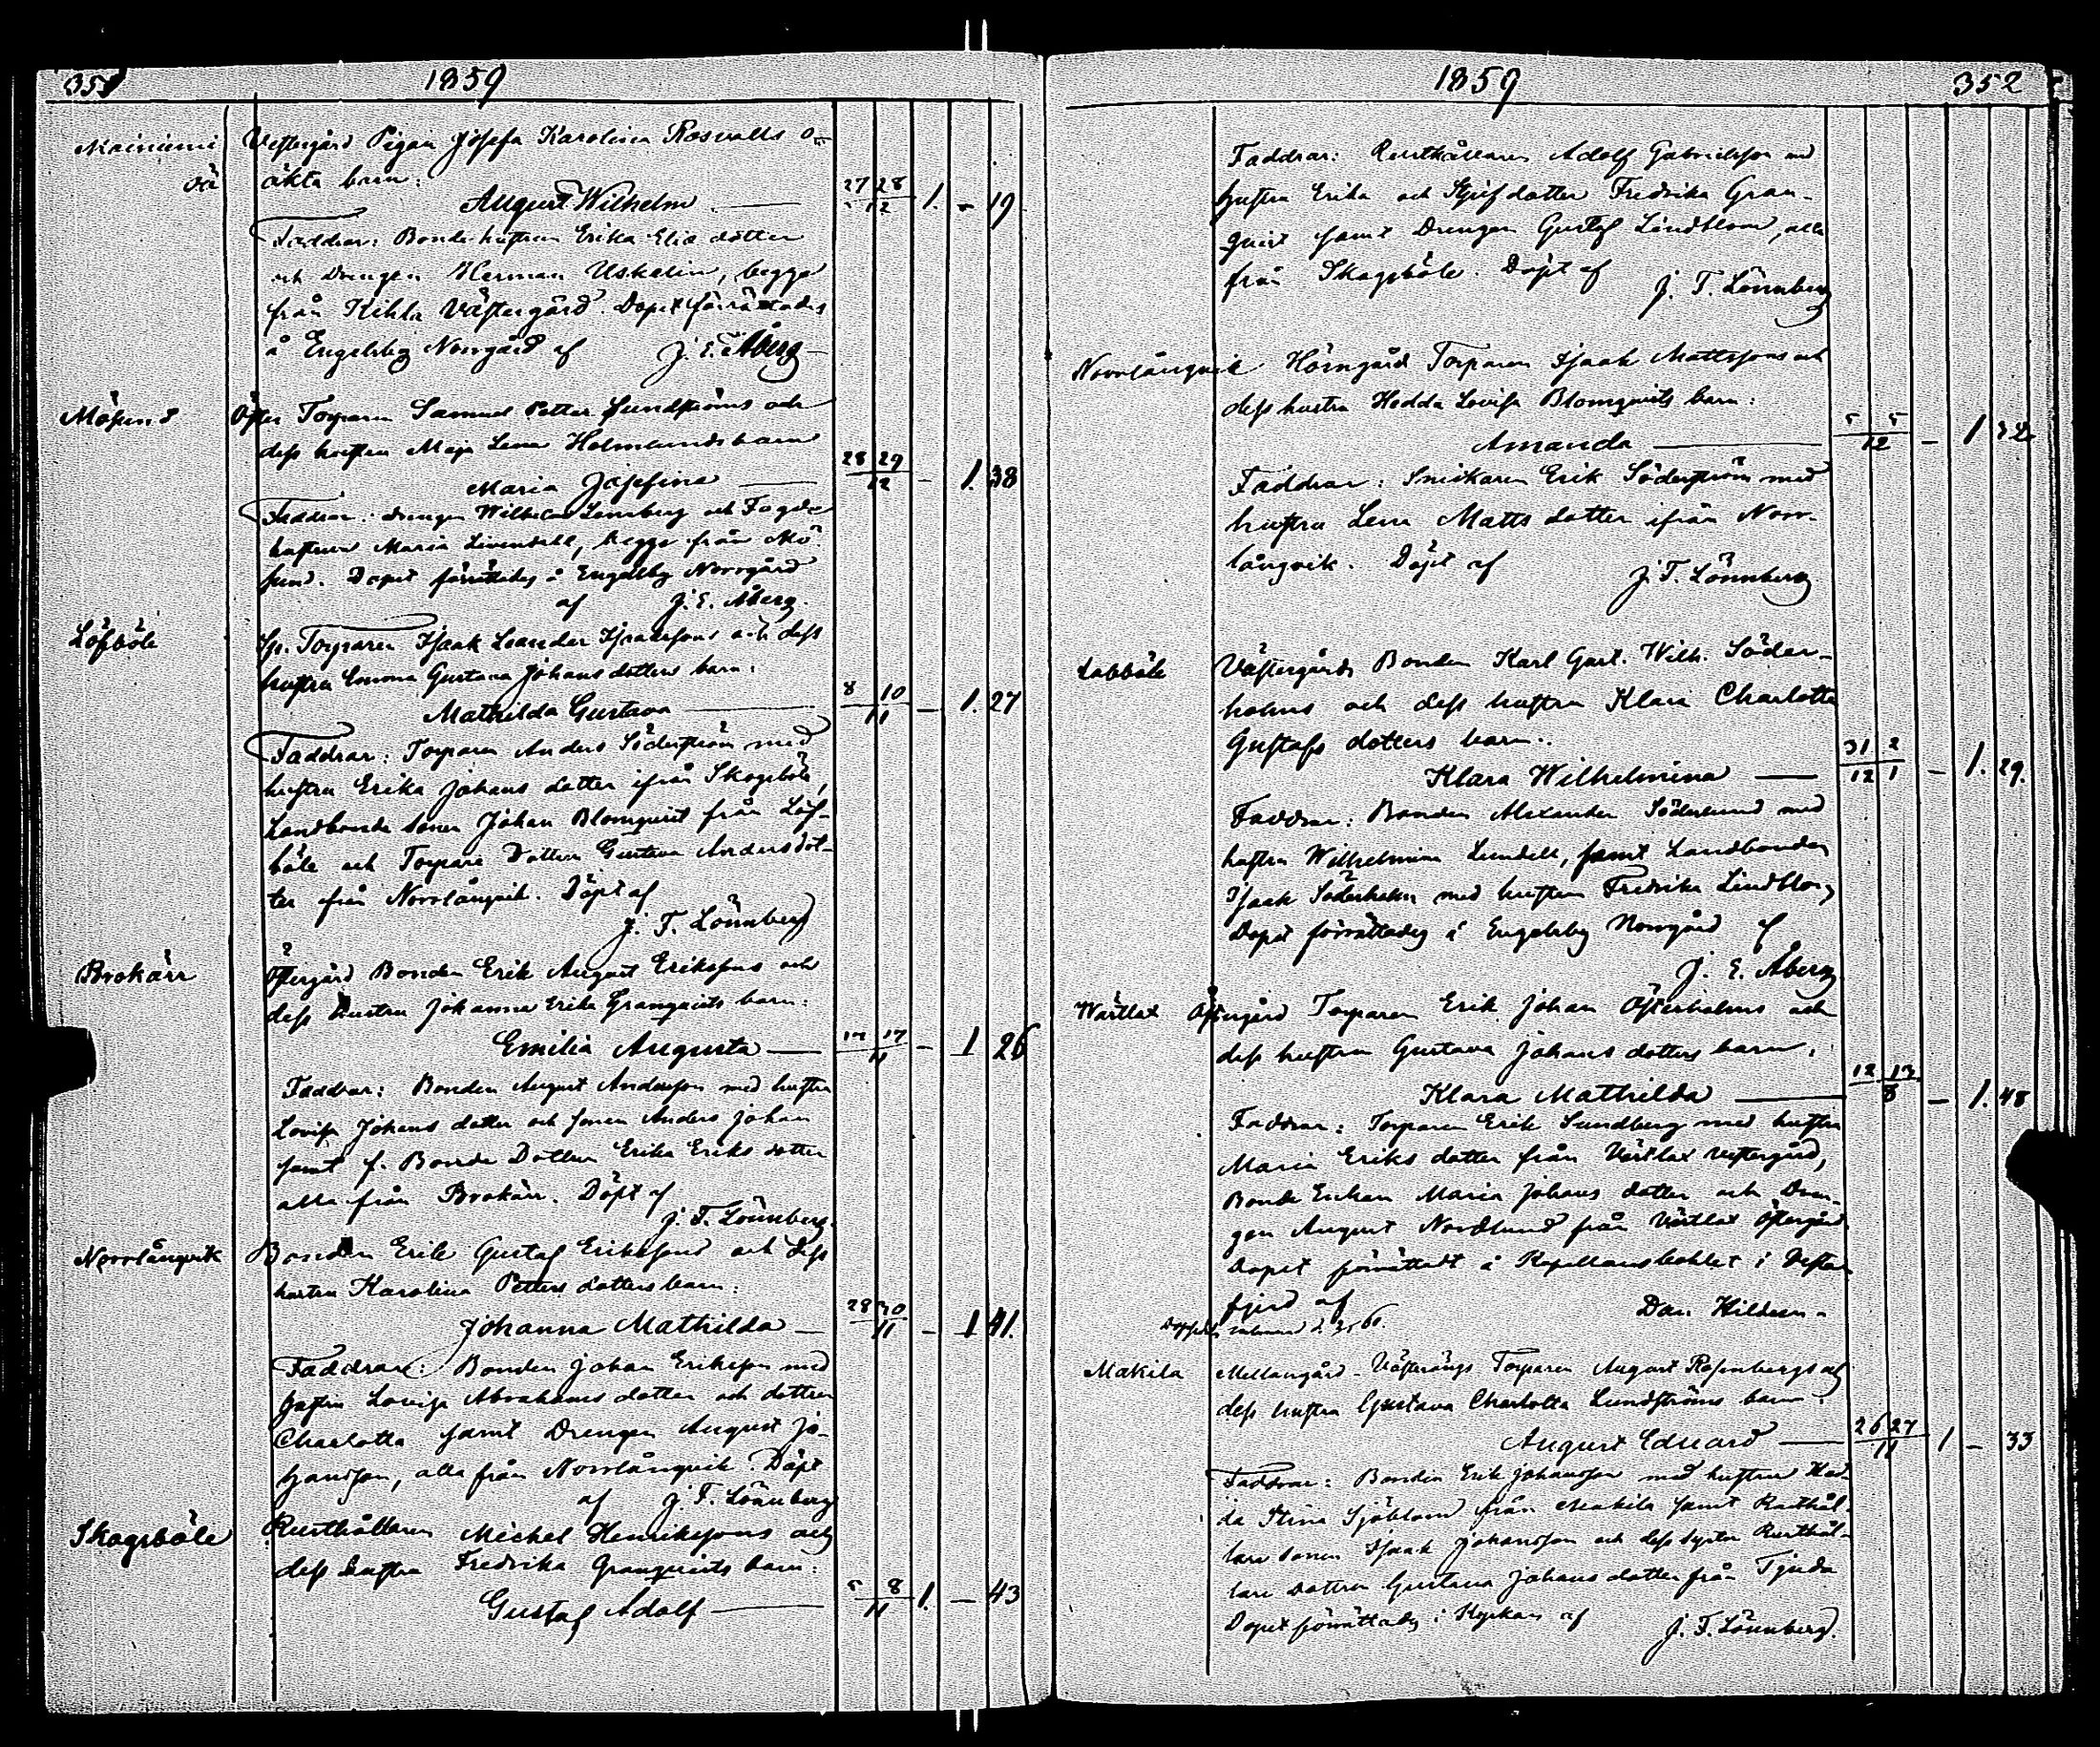 351 1859
Mainiemi Westergård Pigan Josefa Karolina Rosvalls o-
oä äkta barn: 27 28
August Wilhelm — 12 1. - 19
Faddrar: Bonde hustrun Erika Elis dotter
och drengen Herman Uskalin, begge
från Kihla Västergård. Dopet förrättades
å Engelsby Norrgård af J. E. Åberg
Mösund Öster Torparen Samuel Petter Sundströms och
dess hustru Maja Lena Holmlunds barn 28 29
Maria Josefina — 12 - 1. 38
Faddrar: drengen Wilhelm Lennberg och Fogde
hustrun Maria Livendahl, begge från Mö
sund. Dopet förrättades å Engelsby Norrgård
af J. E. Åberg.
Löfböle Torparen Isaak Leander Isaakssons och dess
hustru Emma Gustava Johansdotters barn: 8 10
Mathilda Gustava — 11 - 1. 27
Faddrar: Torparen Anders Söderström med
hustru Erika Johans dotter ifrån Skogsböle,
Landbonde sonen Johan Blomqvist från Löf-
böle och Torpare Dottern Gustava Andersdot-
ter från Norrlångvik. Döpt af
J. F. Lönnberg
Brokärr Östergård Bonden Erik August Erikssons och
dess hustru Johanna Erika Granqvists barn: 17
Emilia Augusta — 11 - 1 26
Faddrar: Bonden August Andersson med hustru
Lovisa Johans dotter och sonen Anders Johan
samt f. Bonde Dottern Erika Eriks dotter
alla från Brokärr. Döpt af
J. F. Lönnberg.
Norrlångvik Bonden Erik Gustaf Erikssons och dess
hustru Karolina Petters dotters barn: 28 30
Johanna Mathilda — 11 - 1 41.
Faddrare: Bonden Johan Eriksson med
hustru Lovisa Abrahams dotter och dottren
Charlotta samt Drengen August Jo-
hansson, alla från Norrlångvik. Döpt
af J. F. Lönnberg
Skogsböle Rusthållaren Michel Henrikssons och
dess hustru Fredrika Granqvists barn: 5 8
Gustaf Adolf — 11 1. - 43
1859 352
Faddrar: Rusthållaren Adolf Gabrielsson med
hustru Erika och Styfdotter Fredrika Gran-
qvist samt Drengen Gustaf Lindblom, alla
från Skogsböle. Döpt af J. F. Lönnberg
Norrlångvik Hörngård Torparen Isaak Mattssons och
dess hustru Hedda Lovisa Blomqvists barn: 5 5
Amanda — 12 - 1 32
Faddrar: Snickaren Erik Söderström med
hustru Lena Matts dotter ifrån Norr-
långvik. Döpt af J. F. Lönnberg
Labböle Västergårds Bonden Karl Gust. Wilh. Söder-
holms och dess hustru Klara Charlotta
Gustafs dotters barn: 31 2
Klara Wilhelmina — 12 1 - 1. 29.
Faddrar: Bonden Alexander Söderlund med
hustru Wilhelmina Lundell, samt Landbonden
Isaak Söderholm med hustrun Fredrika Lindblom,
Dopet förrättades å Engelsby Norrgård af
J. E. Åberg
Wärtlax Östergård Torparen Erik Johan Österholms och
dess hustru Gustava Johans dotters barn: 12 13
Klara Mathilda — 8 - 1. 48
Faddrar: Torparen Erik Sundberg med hustru
Maria Eriks dotter från Värtlax Westergård,
Bonde Enkan Maria Johans dotter och Dren-
gen August Nordlund från Värtlax Östergård
Dopet förrättadt å Kapellansbohlet i Vestan
fjerd af Dan. Hildeen.
Makila Mellangård-Västerängs Torparen August Rosenbergs och
dess hustru Gustava Charlotta Lundströms barn: 26 27
August Eduard — 11 1 - 33
Faddrar: Bonden Erik Johansson med hustrun Hed-
da Stina Sjöblom från Makila samt Rusthål-
lare sonen Isaak Johansson och dess syster Rusthål-
lare dottren Gustava Johans dotter från Tjuda
Dopet förrättades i Kyrkan af J. F. Lönnberg.